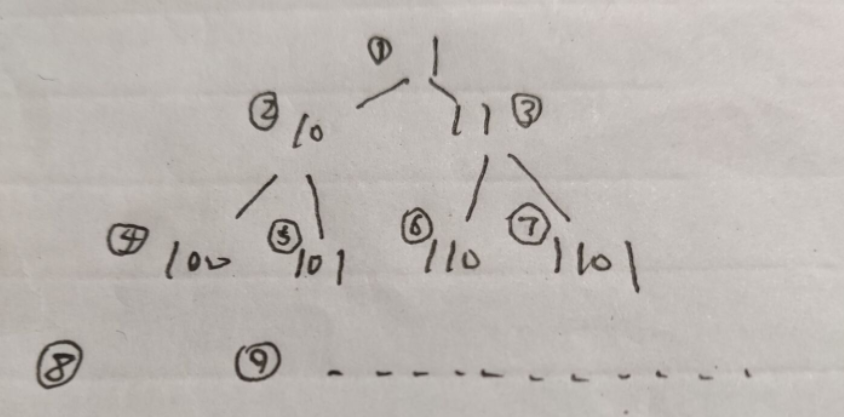 ① 1
② 10 11 ③
④ 100 ⑤ 101 ⑥ 110 ⑦ 1101
⑧ ⑨ - - - - - - - - - -